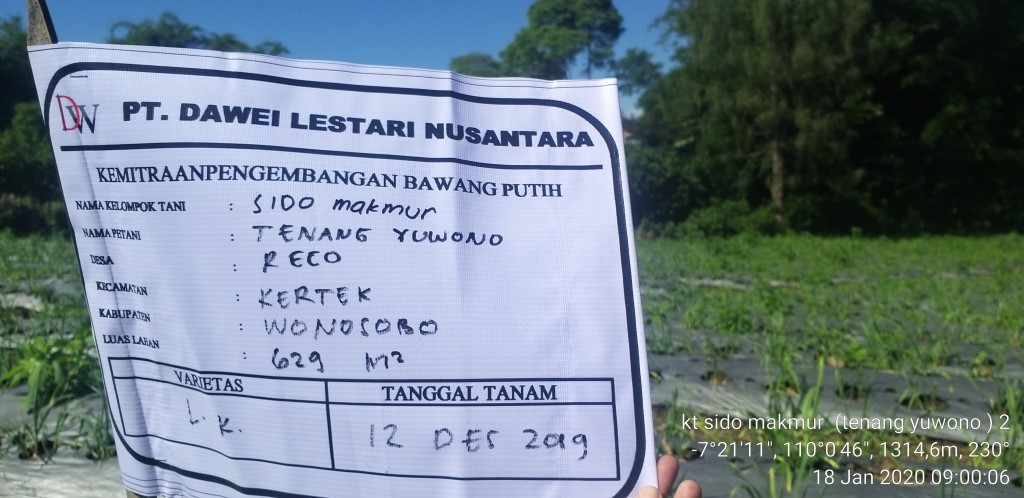 DW PT. DAWEI LESTARI NUSANTARA
KEMITRAANPENGEMBANGAN BAWANG PUTIH
NAMA KELOMPOK TANI : SIDO makmur
NAMA PETANI : TENANG YUWONO
DESA : RECO
KECAMATAN : KERTEK
KABUPATEN : WONOSOBO
LUAS LAHAN : 629 M²
VARIETAS TANGGAL TANAM
L.K. 12 DES 2019
kt sido makmur (tenang yuwono ) 2
-7°21'11", 110°0'46", 1314,6m, 230°
18 Jan 2020 09:00:06